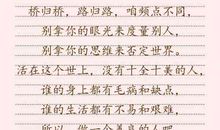 桥归桥，路归路，咱频点不同，
别拿你的眼光来度量别人，
别拿你的思维来否定世界。
活在这个世上，没有十全十美的人，
谁的身上都有毛病和缺点，
谁的生活都有不易和艰难，
所以，做一个善良的人吧